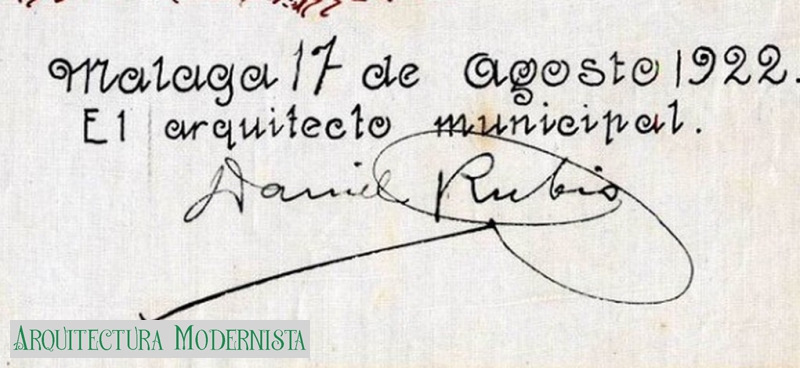 Malaga 17 de Agosto 1922.
El arquitecto municipal.
Daniel Rubio
Arquitectura Modernista